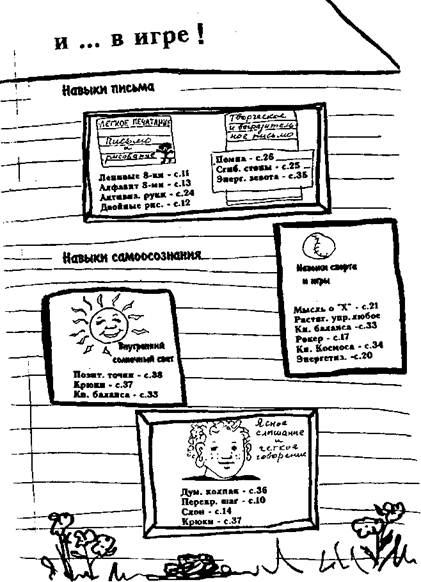 и ... в игре!
Навыки письма
ЛЕГКОЕ ПЕЧАТАНИЕ
письмо
и
рисование
Ленивые 8-ки - с.11
Алфавит 8-ми - с.13
Активиз. руки - с.24
Двойные рис. - с.12
Творческое
и выразитель
ное письмо
Помпа - с.26
Сгиб. стопы - с.25
Энерг. зевота - с.35
Навыки самоосознания
Внутренний
солнечный свет
Позит. точки - с.38
Крюки - с.37
Кн. баланса - с.33
Навыки спорта
и игры
Мысль о "Х" - с.21
Растяг. упр.любое
Кн. баланса -с.33
Рокер - с.17
Кн. Космоса - с.34
Энергетиз. -с.20
Ясное
слышание
и
легкое
говорение
Дум. колпак - с.36
Перекр. шаг - с.10
Слон - с.14
Крюки - с.37